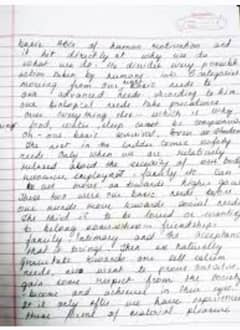 basic ABCs of human motivation and
it hit directly at why we do
what we do. He divides every possible
action taken by humans into 5 categories
moving from our basic needs to
our advanced needs. According to him
our biological needs take precedence
over everything else - which is why
food, water, sleep cannot be compromised
on - our basic survival. Even as
The next in the ladder comes safety
needs. Only when we are relatively
relaxed about the security of our body
resources employment - family etc. can
we move on towards higher goals
These two were our basic needs. After
our needs move towards social needs
The need is to be loved or wanting
to belong somewhere in friendships
family intimacy and the acceptance
that it brings. Then we naturally
gravitate towards our self esteem
needs, we want to prove ourselves,
gain some respect from the society
become and achieved in their eyes
It is only after we have experienced
these forms of material pleasure